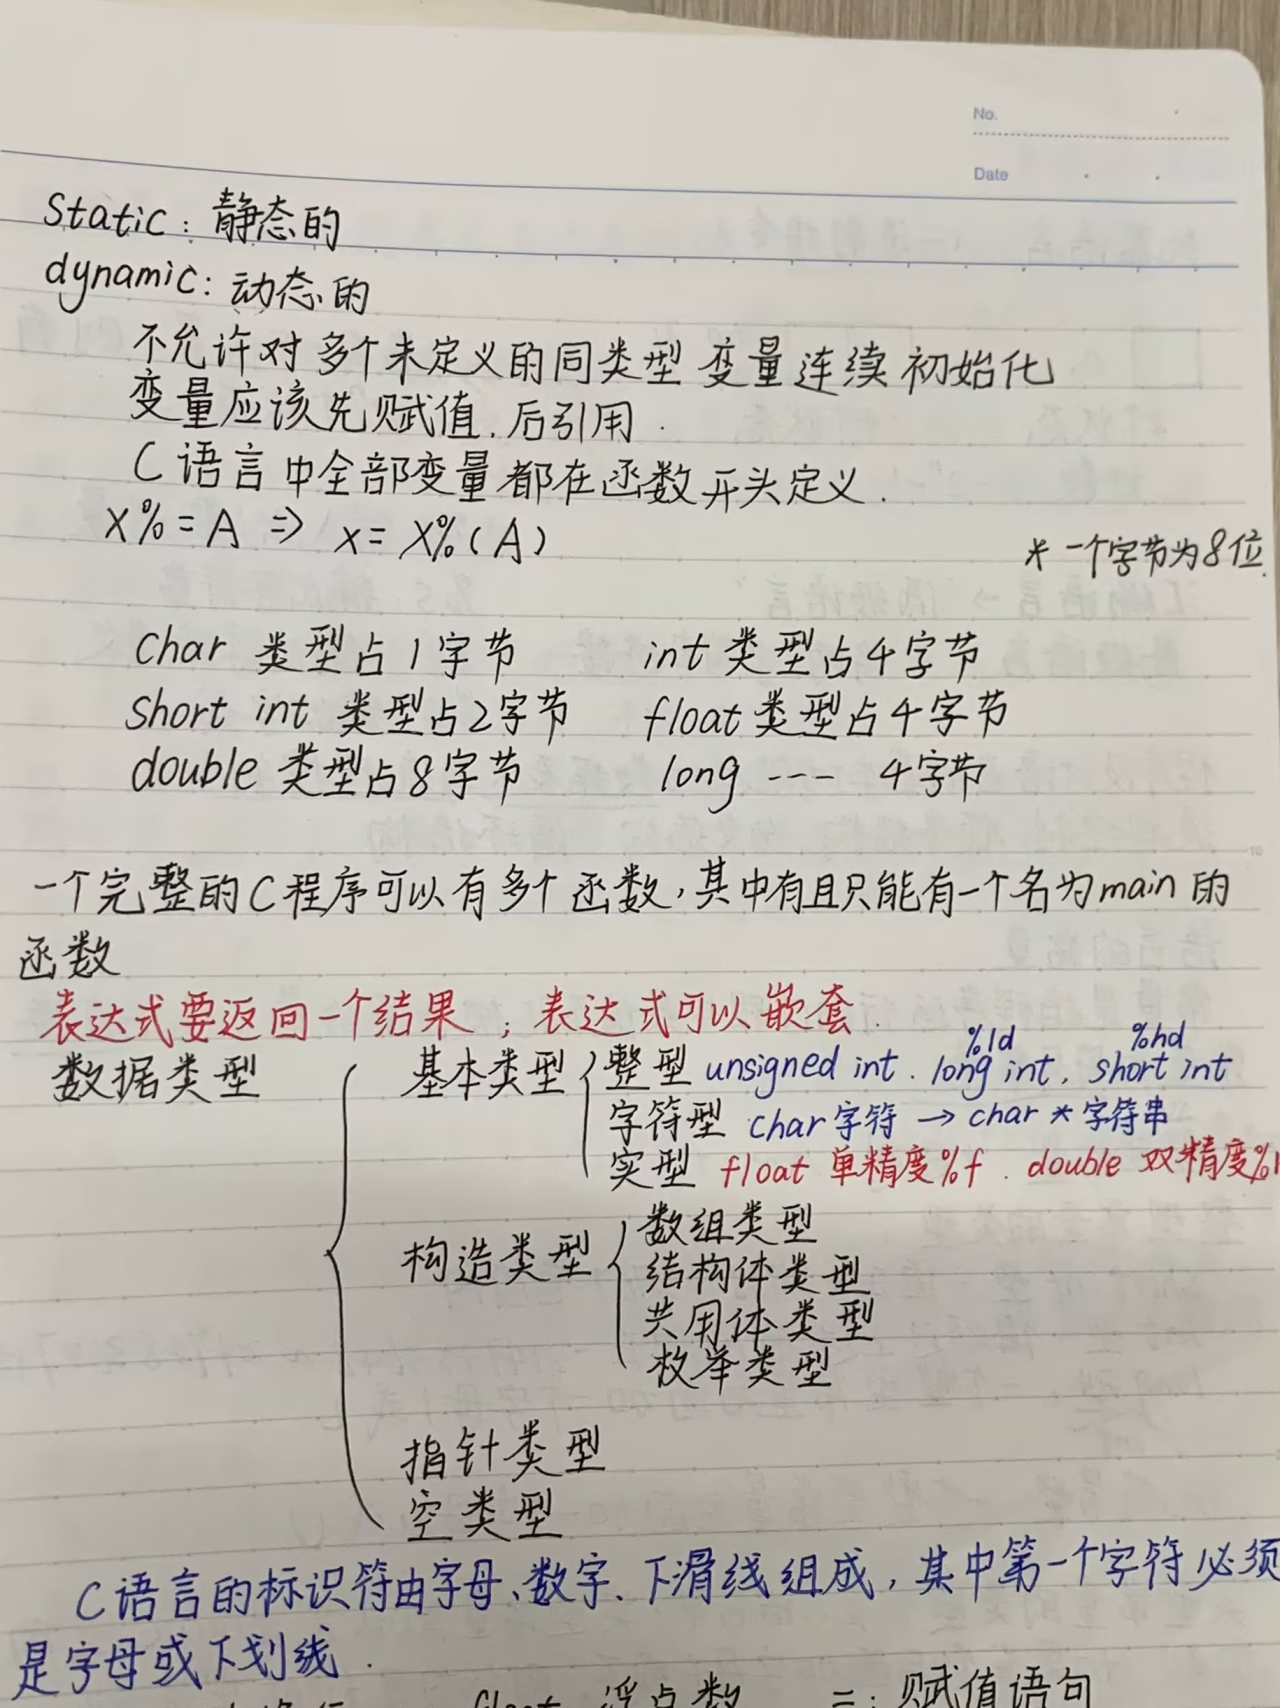 No.
Date
Static：静态的
dynamic：动态的
不允许对多个未定义的同类型变量连续初始化
变量应该先赋值.后引用.
C语言中全部变量都在函数开头定义.
X%=A ⇒ x=X%(A)
* 一个字节为8位.
Char 类型占1字节 int 类型占4字节
Short int 类型占2字节 float类型占4字节
double 类型占8字节 long --- 4字节
10
一个完整的C程序可以有多个函数,其中有且只能有一个名为main的
函数
表达式要返回一个结果；表达式可以嵌套.
%ld %hd
数据类型 基本类型 整型 unsigned int. long int, short int
字符型 char字符 → char * 字符串
实型 float 单精度%f. double 双精度%l
构造类型 数组类型
结构体类型
共用体类型
枚举类型
指针类型
空类型
C语言的标识符由字母、数字、下滑线组成,其中第一个字符必须
是字母或下划线.
float 浮点数 =：赋值语句